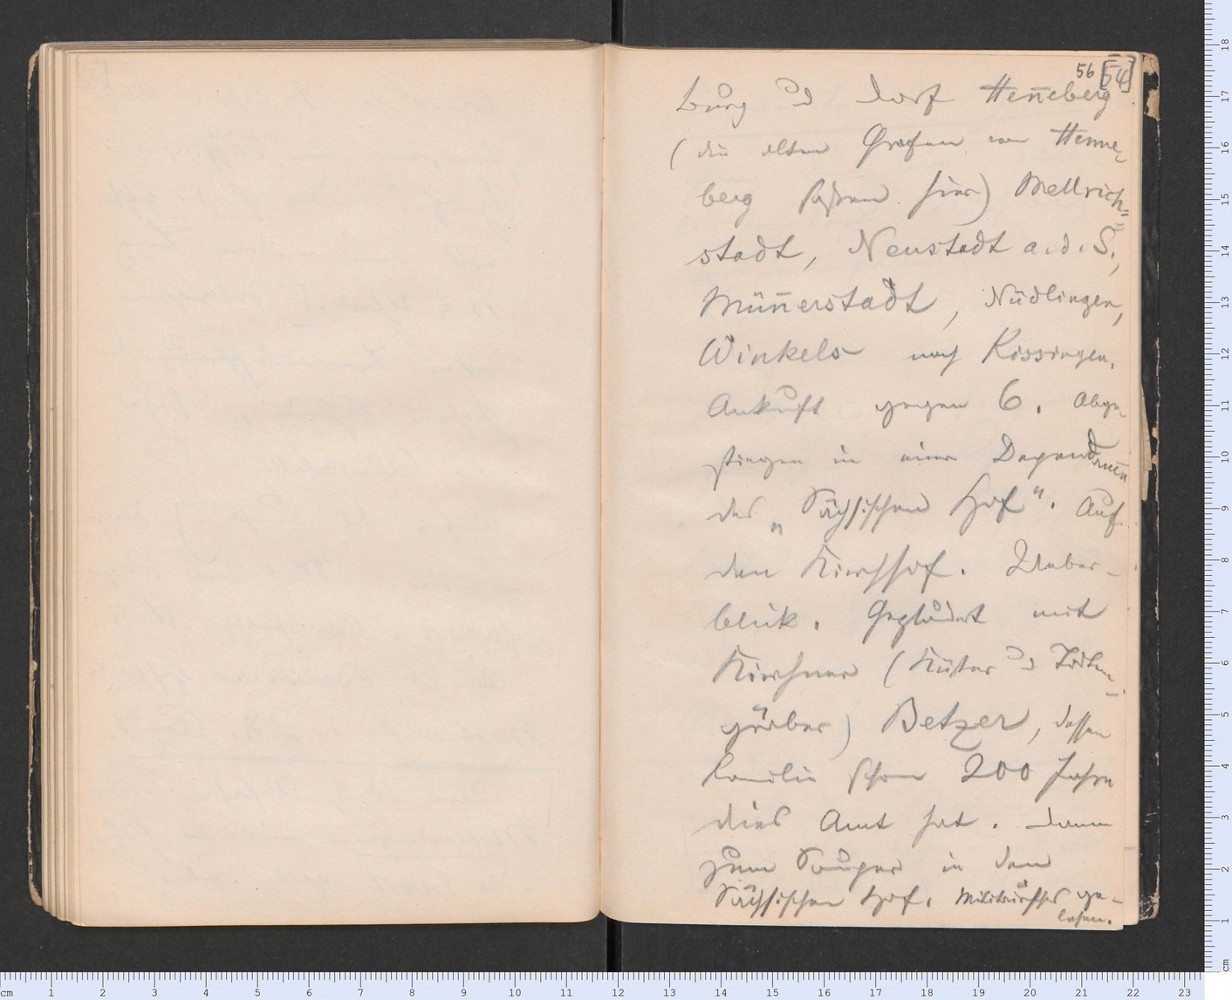 56 [54]
burg u Dorf Henneberg
(die alten Grafen von Henne-
berg saßen hier) Mellrich=
stadt, Neustadt a. d. S.,
Münnerstadt, Nüdlingen,
Winkels nach Kissingen.
Ankunft gegen 6. Abge-
stiegen in einer Dependance
des „Sächsischen Hof". Auf
den Kirchhof. Ueber-
blick. Geplaudert mit
Kirchner (Küster u Todten-
gräber) Betzer, dessen
Familie schon 200 Jahre
dies Amt hat. Dann
zum Souper in dem
Sächsischen Hof. Militärisches ge-
lesen.